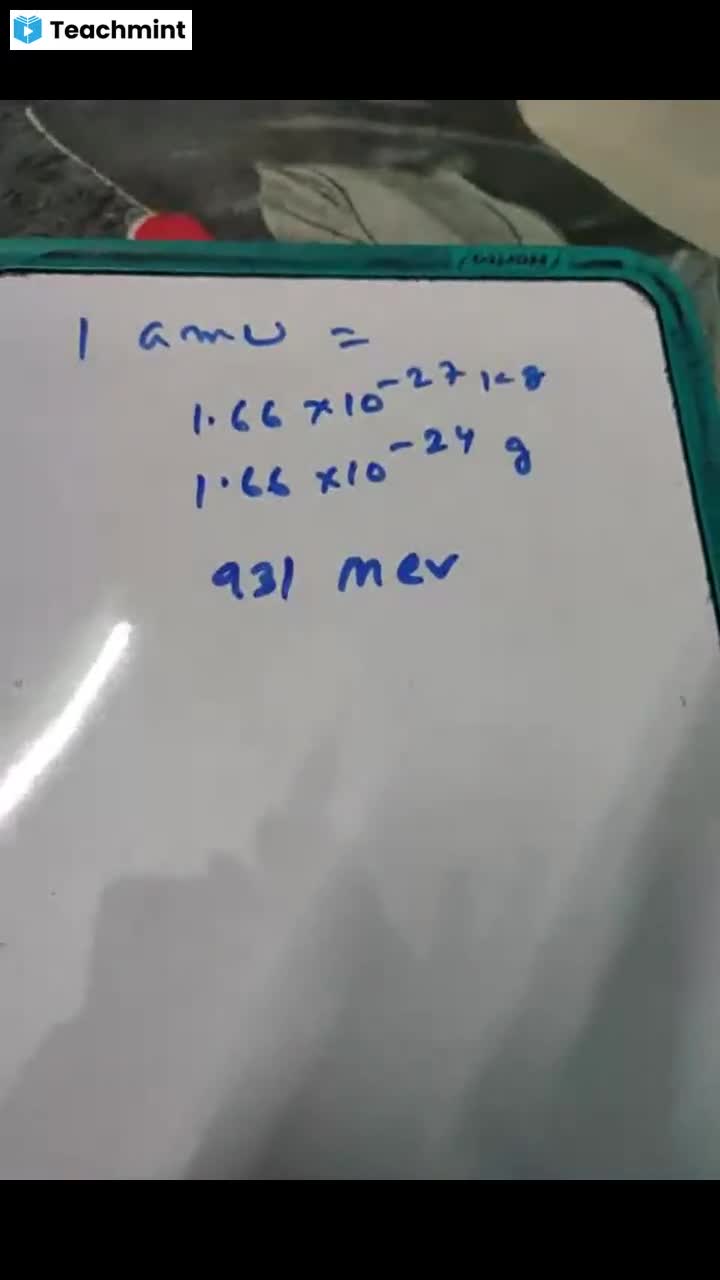 Teachmint
1 amu =
1.66 × 10⁻²⁷ kg
1.66 × 10⁻²⁴ g
931 mev